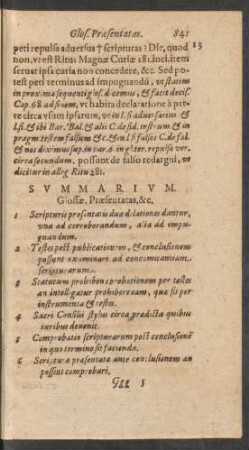 Glos. Præsentatas. 841
peti repulsa aduersus † scripturas? Dic, quod 13
non, vt est Ritu Magnæ Curiæ 281. incl. item
seruat ipsa curia non concedere, &c. Sed po-
test peti terminus ad impugnandū, vt statim
in proxima sequenti glos. d.
Cap. 68 ad finem, vt habita declaratione à par-
te circa vsum ipsarum, vt in l. si aduersarius &
l. si tibi Bar. Bal. & alii C. de fid. instrum. & in
&c. & in l. si falsos C. de fal.
& nos diximus sup. in var. 6. in glos. repulsæ ver.
circa secundum, possunt de falso redargui, vt
dicitur in alleg. Ritu 281.
SVMMARIVM.
Glossæ, Præsentatas, &c.
1 Scripturis præsentatis duæ dilationes dantur,
vna ad corroborandum, alia ad impu-
gnandum.
2 Testes post publicationem, & conclusionem
possunt examinari ad concomitantiam
scripturarum.
3 Statutum prohibens probationem per testes
an intelligatur prohibere eam, quæ fit per
instrumenta & testes.
4 Sacri Consilii stylus circa prædicta quibus
iuribus deuenit.
5 Comprobatio scripturarum post conclusionē
in quo termino sit facienda.
6 Scripturæ præsentatæ ante conclusionem an
possint comprobari.
Ggg 5